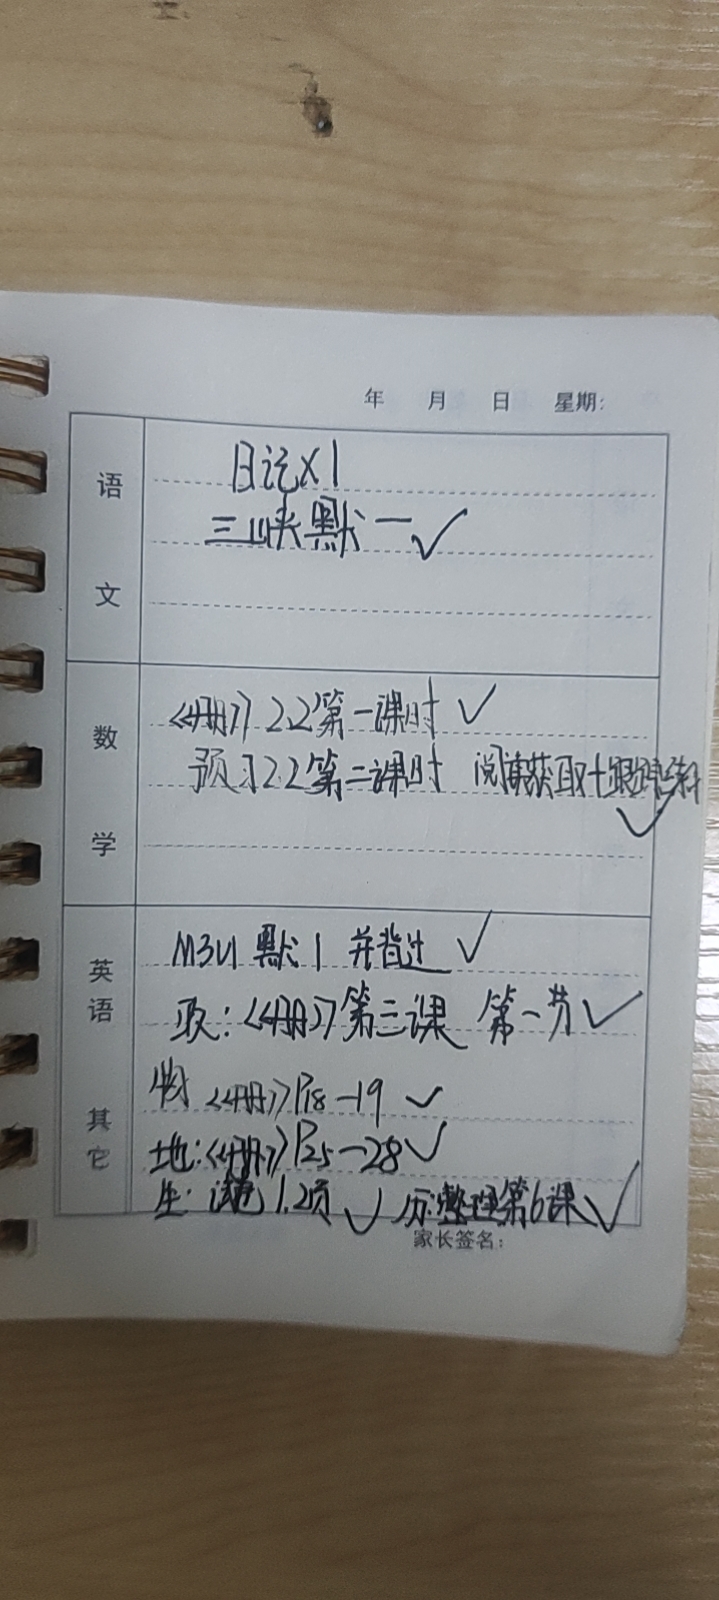 年 月 日 星期:
语文
日记X1
三峡默一✓
数学
《册》2.2第一课时 ✓
预习2.2第二课时 阅读获取+跟踪练
✓
英语
M3U1 默1 并背过 ✓
政:《册》第三课 第一节✓
其它
物《册》P18-19 ✓
地:《册》P25-28✓
生: 1.2页 ✓ 历:整理第6课✓
家长签名: